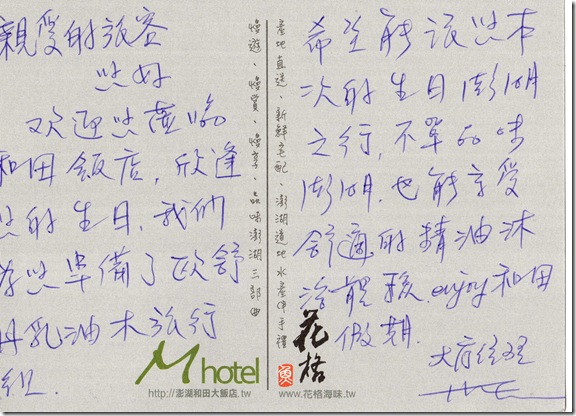 親愛的旅客
您好
欢迎您蒞臨
和田飯店,欣逢
您的生日,我們
為您準備了歐舒
丹乳油木旅行
組.
M hotel
http://澎湖和田大飯店.tw
慢遊、慢賞、慢享、品味澎湖三部曲
產地直送、新鮮宅配、澎湖道地水產伴手禮
希望能讓您本
次的生日澎湖
之行,不單品味
澎湖,也能享受
舒適的精油沐
浴體驗.enjoy和田
假期.
經理
花格
魚
www.花格海味.tw